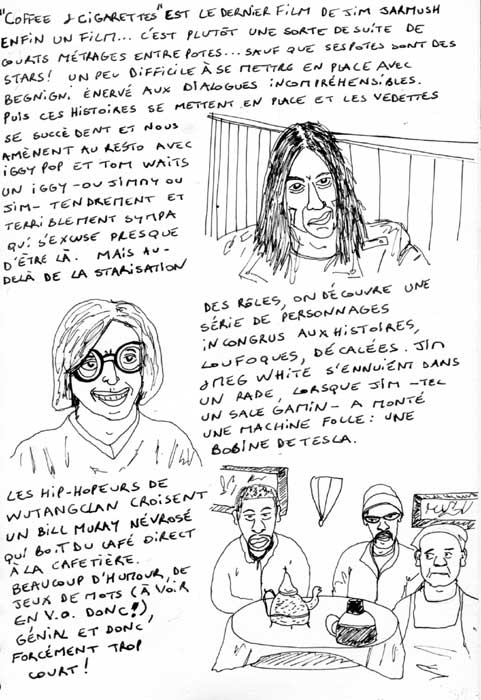 "COFFEE & CIGARETTES" EST LE DERNIER FILM DE JIM JARMUSH
ENFIN UN FILM... C'EST PLUTÔT UNE SORTE DE SUITE DE
COURTS MÉTRAGES ENTRE POTES... SAUF QUE SES POTES SONT DES
STARS! UN PEU DIFFICILE À SE METTRE EN PLACE AVEC
BEGNIGNI ÉNERVÉ AUX DIALOGUES INCOMPRÉHENSIBLES.
PUIS CES HISTOIRES SE METTENT EN PLACE ET LES VEDETTES
SE SUCCÈDENT ET NOUS
AMÈNENT AU RESTO AVEC
IGGY POP ET TOM WAITS
UN IGGY -OU JIMMY OU
JIM- TENDREMENT ET
TERRIBLEMENT SYMPA
QUI S'EXCUSE PRESQUE
D'ÊTRE LÀ. MAIS AU-
DELÀ DE LA STARISATION
DES RÔLES, ON DÉCOUVRE UNE
SÉRIE DE PERSONNAGES
INCONGRUS AUX HISTOIRES,
LOUFOQUES, DÉCALÉES. JIM
& MEG WHITE S'ENNUIENT DANS
UN RADE, LORSQUE JIM -TEL
UN SALE GAMIN- A MONTÉ
UNE MACHINE FOLLE: UNE
BOBINE DE TESLA.
LES HIP-HOPEURS DE
WUTANGCLAN CROISENT
UN BILL MURAY NÉVROSÉ
QUI BOIT DU CAFÉ DIRECT
À LA CAFETIÈRE.
BEAUCOUP D'HUMOUR, DE
JEUX DE MOTS (À VOIR
EN V.O. DONC!),
GÉNIAL ET DONC,
FORCÉMENT TROP
COURT!